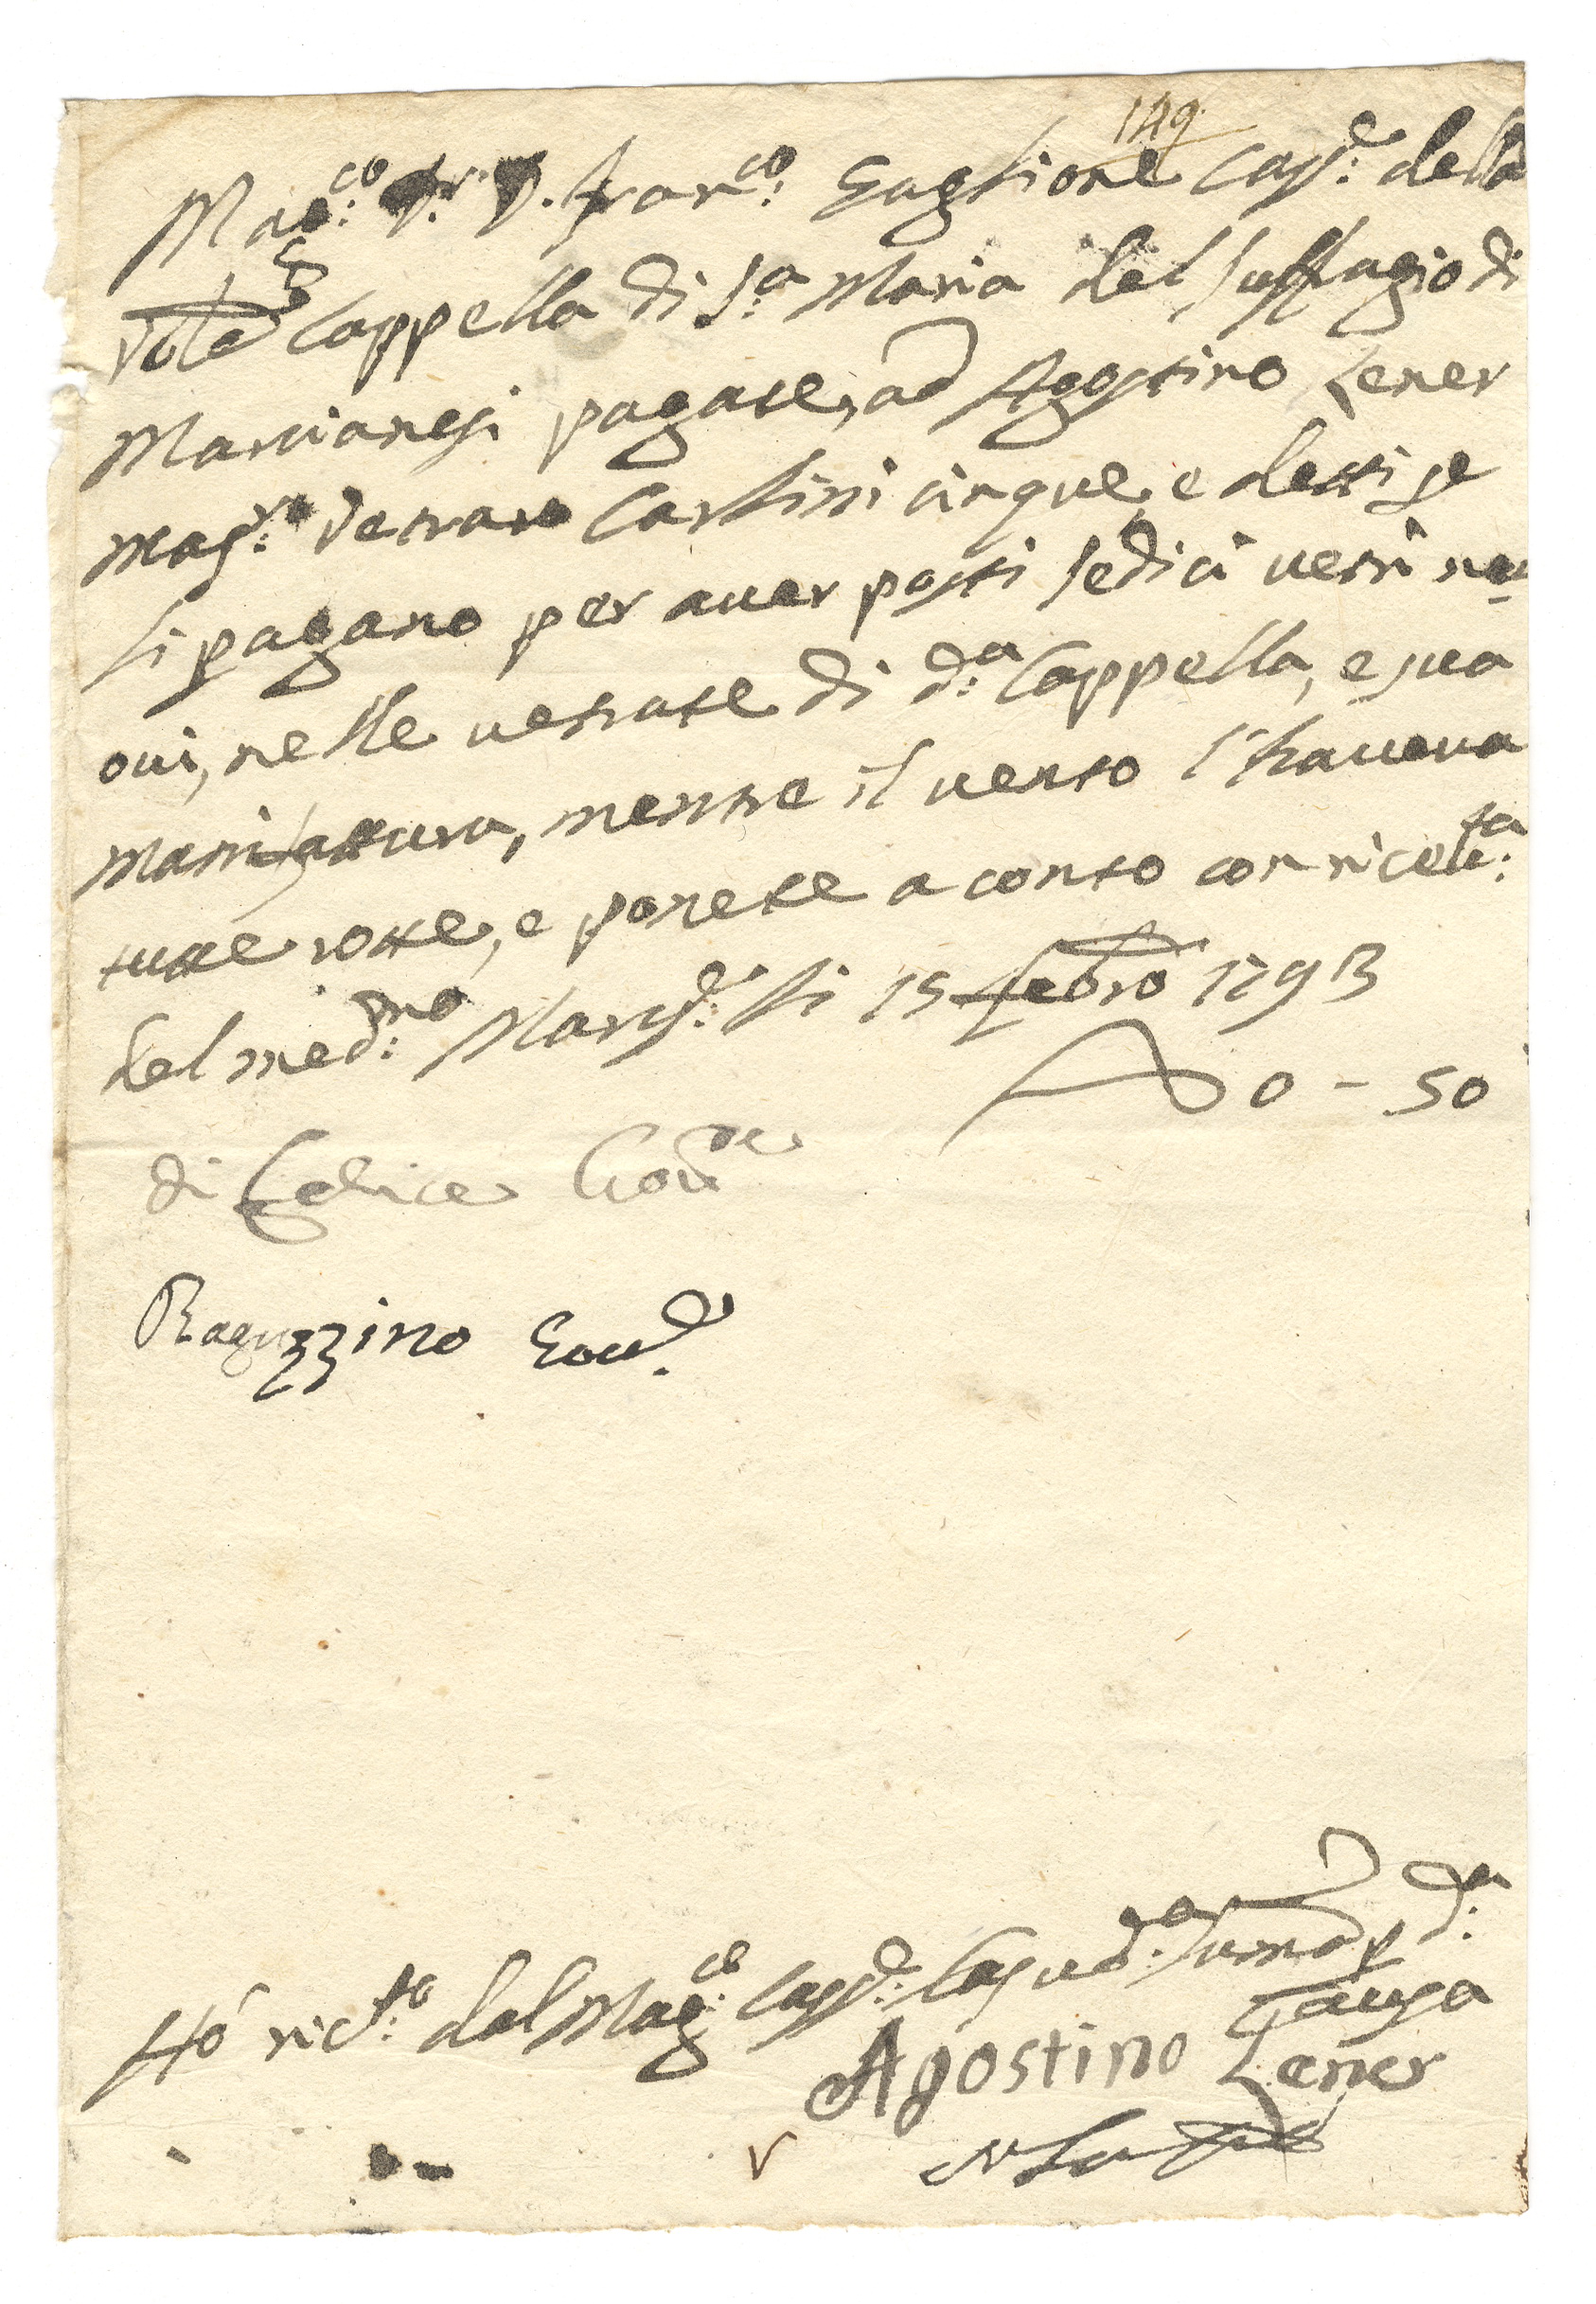 149
Mag:co Sr. D. Fran:co Guglione Cass:e della
Ven:le Cappella di S:a Maria del Suffragio di
Marcianesi pagate, ad Agostino Zener
Mas:ro Vetraro Carlini cinque, e detti se
li pagano per aver posti sedici vetri nu=
ovi, nelle vetrate di d:a Cappella, e sua
manifattura, mentre il vento l'haveva
tutte rotte, e ponete a conto con ricev:ta
del med:mo Marc:e li 15 febro 1793
0 - 50
di Felice Gov:re
Raguzzino Gov:e
Hó ric:to dal Mag:co Cass:e la sud:a summa p d:a
Causa
Agostino Zener